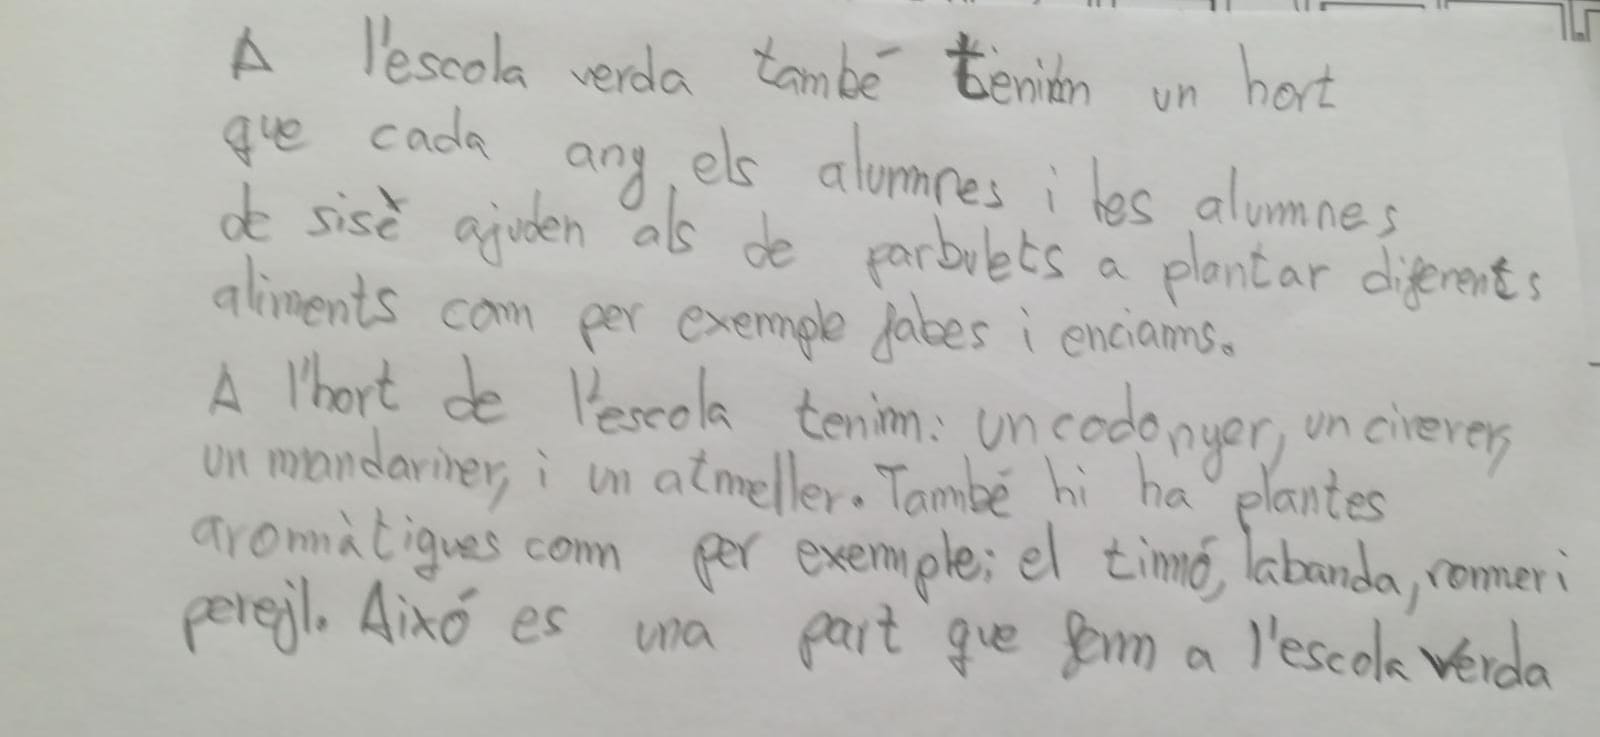 A l'escola verda també tenim un hort
que cada any els alumnes i les alumnes
de sisè ajuden als de parbulets a plantar diferents
aliments com per exemple fabes i enciams.
A l'hort de l'escola tenim: un codonyer, un cirerer,
un mandariner, i un atmeller. També hi ha plantes
aromàtigues com per exemple: el timó, labanda, romer i
perejil. Aixó es una part que fem a l'escola verda